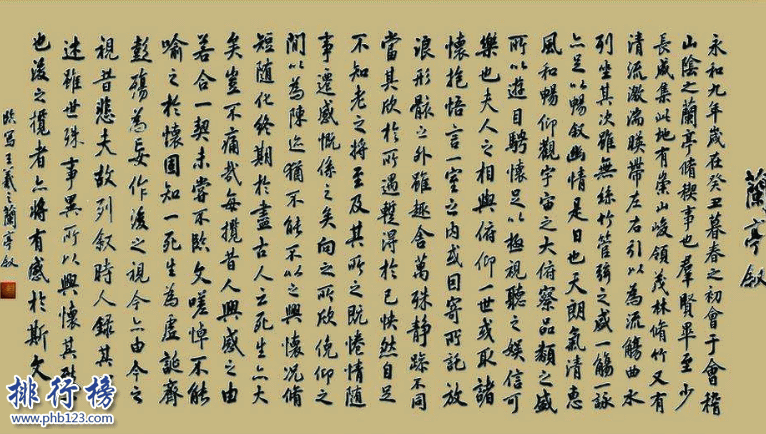 蘭亭叙
永和九年歲在癸丑暮春之初會于會稽
山陰之蘭亭脩稧事也羣賢畢至少
長咸集此地有崇山峻領茂林脩竹又有
清流激湍暎帶左右引以為流觴曲水
列坐其次雖無絲竹管弦之盛一觴一詠
亦足以暢叙幽情是日也天朗氣清惠
風和暢仰觀宇宙之大俯察品類之盛
所以遊目騁懷足以極視聽之娛信可
樂也夫人之相與俯仰一世或取諸
懷抱悟言一室之內或因寄所託放
浪形骸之外雖趣舍萬殊靜躁不同
當其欣於所遇蹔得於己怏然自足
不知老之將至及其所之既惓情隨
事遷感慨係之矣向之所欣俛仰之
間以為陳迹猶不能不以之興懷況脩
短隨化終期於盡古人云死生亦大
矣豈不痛哉每攬昔人興感之由
若合一契未嘗不臨文嗟悼不能
喻之於懷固知一死生為虛誕齊
彭殤為妄作後之視今亦由今之
視昔悲夫故列叙時人錄其
述雖世殊事異所以興懷其致
也後之攬者亦將有感於斯文
臨寫王羲之蘭亭叙
排行榜
www.phb123.com